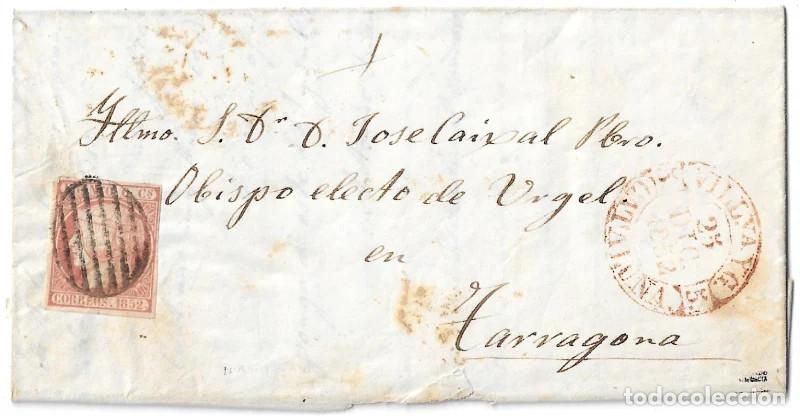 Yltmo. S. Dr. D. Jose Caixal Pbro.
Obispo electo de Urgel.
en
Tarragona
CS
CORREOS. 1852
25
DIC
1852
todocoleccion